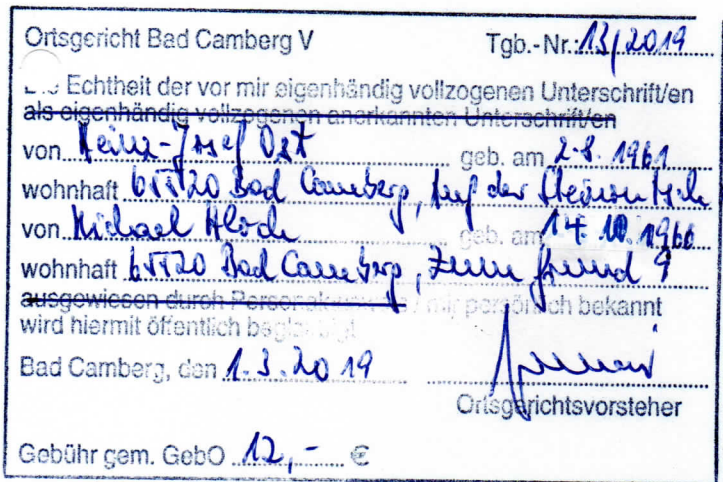 Ortsgericht Bad Camberg V Tgb.-Nr.: 13/2019
Die Echtheit der vor mir eigenhändig vollzogenen Unterschrift/en
als eigenhändig vollzogenen anerkannten Unterschrift/en
von Heinz-Josef Ost geb. am 2.8.1961
wohnhaft 65520 Bad Camberg, Auf der
von Michael geb. am 14.10.1960
wohnhaft 65520 Bad Camberg, Zum Grund 9
ausgewiesen durch / mir persönlich bekannt
wird hiermit öffentlich beglaubigt
Bad Camberg, den 1.3.2019
Ortsgerichtsvorsteher
Gebühr gem. GebO 12,- €